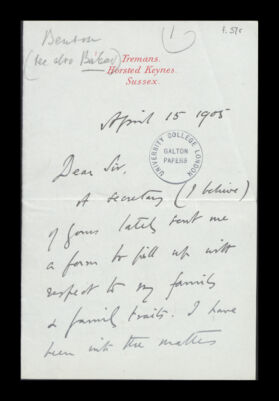 f. 57r
Benson
(see also Baker)
1
Tremans.
Horsted Keynes.
Sussex.
April 15 1905
UNIVERSITY COLLEGE LONDON
GALTON
PAPERS
Dear Sir.
A secretary (I believe)
of yours lately sent me
a form to fill up with
respect to my family
& family traits. I have
been into the matter